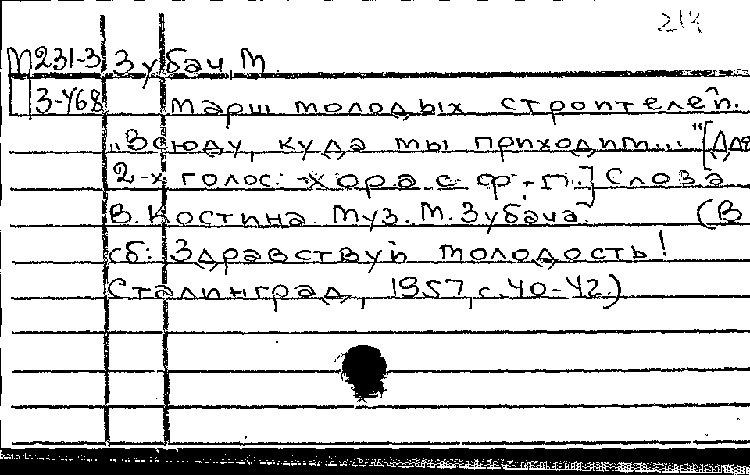 214
М 231-3 Зубач, М.
З-468 Марш молодых строителей.
„Всюду, куда мы приходим..." [Для
2-х голос. хора с ф.-п.] Слова
В. Костина. Муз. М. Зубача. (В
сб: Здравствуй молодость!
Сталинград, 1957, с. 40-42.)